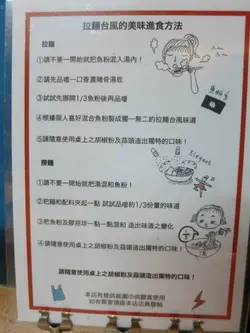 拉麵台風的美味進食方法
拉麵
①請不要一開始就把魚粉混入湯內！
②請先品嚐一口香濃豬骨湯底
③試試先挪開1/3魚粉後再品嚐
④根據個人喜好混合魚粉製成獨一無二的拉麵台風味道
⑤請隨意使用桌上之胡椒粉及蒜頭造出獨特的口味！
撈麵
①請不要一開始就把湯混和魚粉！
②把麵和配料夾起一點 試試品嚐約1/3份量的味道
③把魚粉及膠原球一點一點混和 造出味道之變化
④請隨意使用桌上之胡椒粉及蒜頭造出獨特的口味！
Elegant
請隨意使用桌上之胡椒粉及蒜頭造出獨特的口味！
本店有提供紙圍巾供顧客使用
如有需要請跟本店店員發略